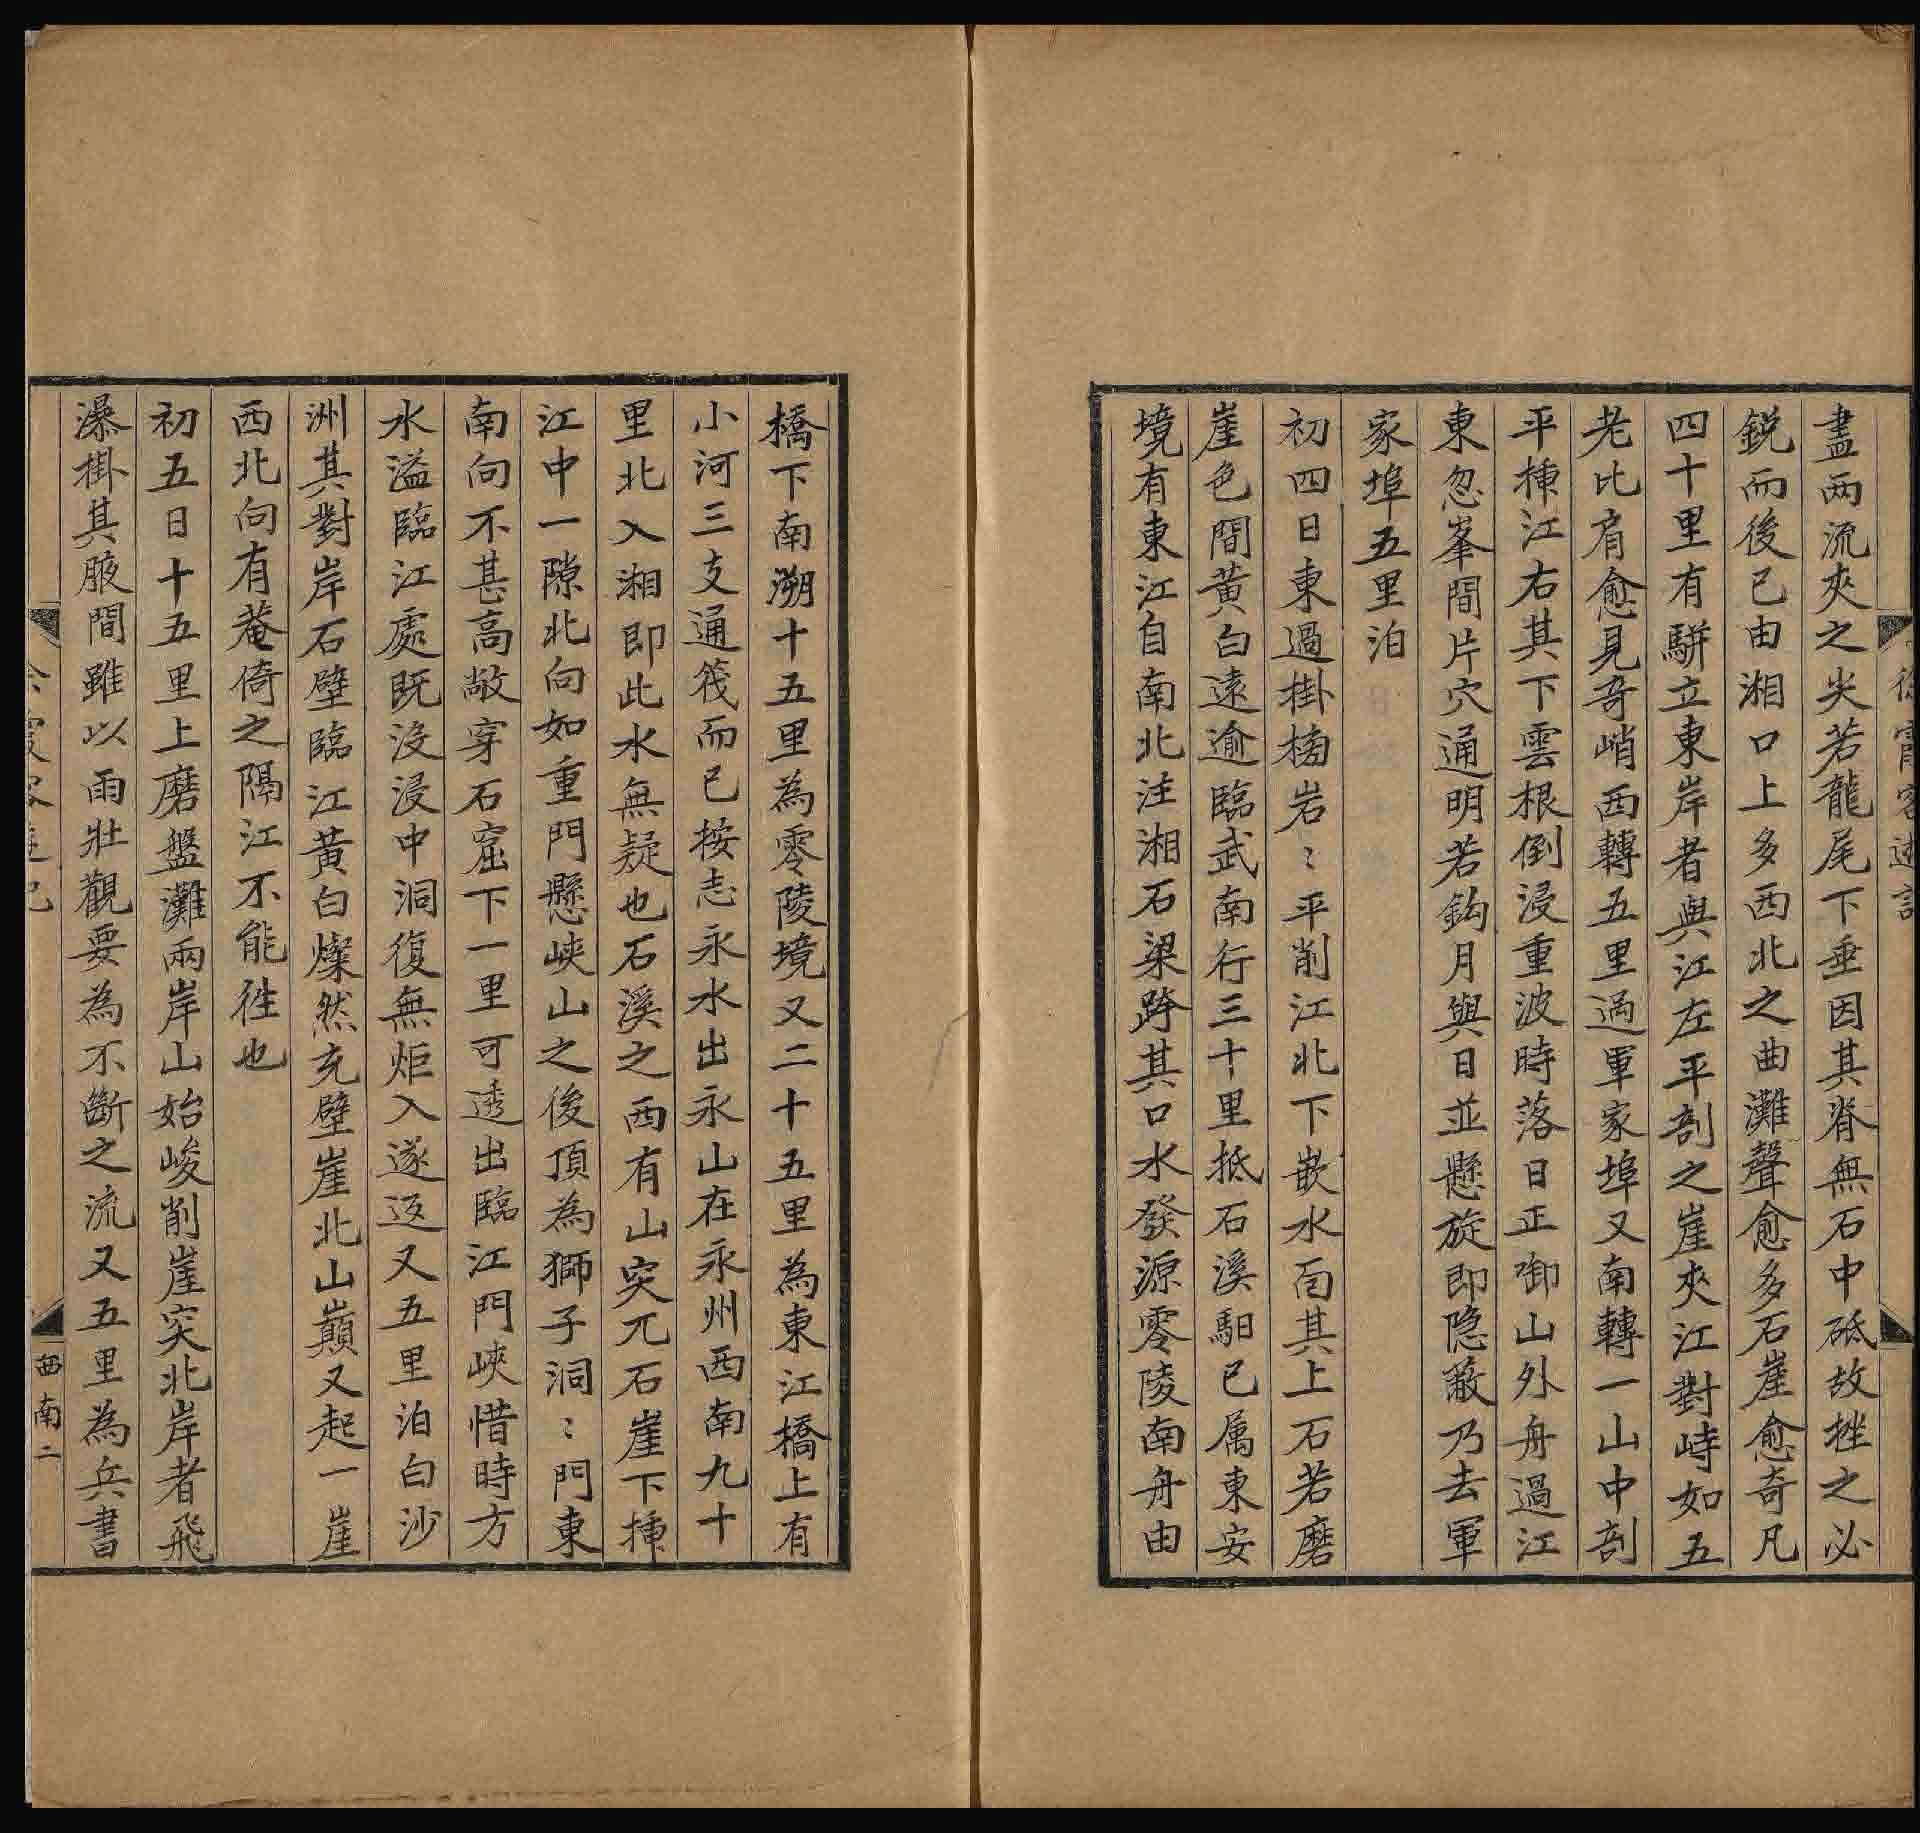 盡兩流夾之尖若龍尾下垂因其脊無石中砥故挫之必
銳而後已由湘口上多西北之曲灘聲愈多石崖愈奇凡
四十里有駢立東岸者與江左平剖之崖夾江對峙如五
老比肩愈見奇峭西轉五里過軍家埠又南轉一山中剖
平揷江右其下雲根倒浸重波時落日正啣山外舟過江
東忽峯間片穴通明若鈎月與日並懸旋即隱蔽乃去軍
家埠五里泊
初四日東過掛榜岩〻平削江北下嵌水面其上石若磨
崖色間黃白遠逾臨武南行三十里抵石溪馹已属東安
境有東江自南北注湘石梁跨其口水發源零陵南舟由
橋下南溯十五里為零陵境又二十五里為東江橋上有
小河三支通筏而已按志永水出永山在永州西南九十
里北入湘即此水無疑也石溪之西有山突兀石崖下揷
江中一隙北向如重門懸峽山之後頂為獅子洞〻門東
南向不甚高敞穿石窟下一里可透出臨江門峽惜時方
水溢臨江處既沒浸中洞復無炬入遂返又五里泊白沙
洲其對岸石壁臨江黃白燦然充壁崖北山巔又起一崖
西北向有菴倚之隔江不能徃也
初五日十五里上磨盤灘兩岸山始峻削崖突北岸者飛
瀑掛其腋間雖以雨壯觀要為不斷之流又五里為兵書
西南二